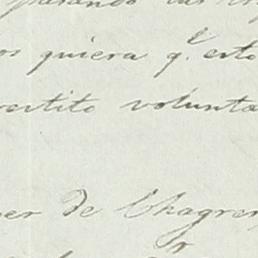 pasando las
os quiera q.^l esto
vertito volunta
er de Chagres